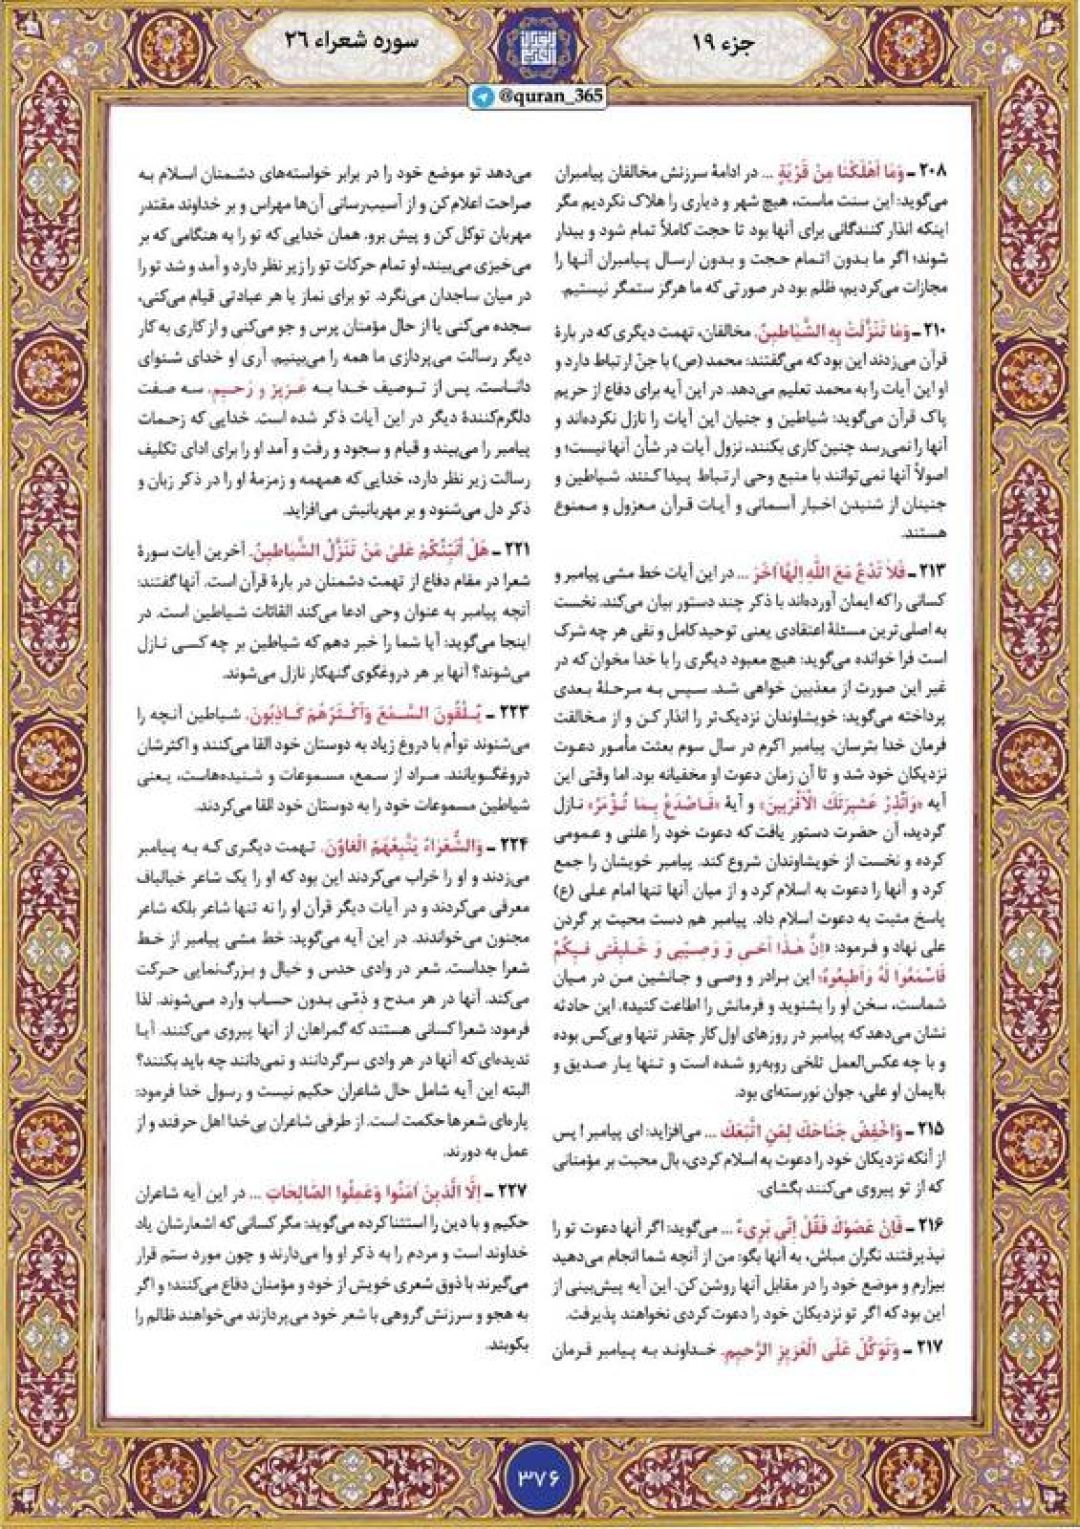 جزء ۱۹
سوره شعراء ۲۶
@quran_365
۲۰۸ ـ وَمَا أَهْلَكْنَا مِنْ قَرْيَةٍ ... در ادامهٔ سرزنش مخالفان پیامبران
می‌گوید: این سنت ماست، هیچ شهر و دیاری را هلاک نکردیم مگر
اینکه انذار کنندگانی برای آنها بود تا حجت کاملاً تمام شود و بیدار
شوند؛ اگر ما بدون اتمام حجت و بدون ارسال پیامبران آنها را
مجازات می‌کردیم، ظلم بود در صورتی که ما هرگز ستمگر نیستیم.
۲۱۰ ـ وَمَا تَنَزَّلَتْ بِهِ الشَّيَاطِينُ. مخالفان، تهمت دیگری که در بارهٔ
قرآن می‌زدند این بود که می‌گفتند: محمد (ص) با جنّ ارتباط دارد و
او این آیات را به محمد تعلیم می‌دهد. در این آیه برای دفاع از حریم
پاک قرآن می‌گوید: شیاطین و جنیان این آیات را نازل نکرده‌اند و
آنها را نمی‌رسد چنین کاری بکنند، نزول آیات در شأن آنها نیست؛ و
اصولاً آنها نمی‌توانند با منبع وحی ارتباط پیدا کنند. شیاطین و
جنینان از شنیدن اخبار آسمانی و آیات قرآن معزول و ممنوع
هستند.
۲۱۳ ـ فَلَا تَدْعُ مَعَ اللّٰهِ إِلٰهًا آخَرَ ... در این آیات خط مشی پیامبر و
کسانی را که ایمان آورده‌اند با ذکر چند دستور بیان می‌کند. نخست
به اصلی‌ترین مسئلهٔ اعتقادی یعنی توحید کامل و نفی هر چه شرک
است فرا خوانده می‌گوید: هیچ معبود دیگری را با خدا مخوان که در
غیر این صورت از معذبین خواهی شد. سپس به مرحلهٔ بعدی
پرداخته می‌گوید: خویشاوندان نزدیک‌تر را انذار کن و از مخالفت
فرمان خدا بترسان. پیامبر اکرم در سال سوم بعثت مأمور دعوت
نزدیکان خود شد و تا آن زمان دعوت او مخفیانه بود. اما وقتی این
آیه «وَأَنْذِرْ عَشِيرَتَكَ الْأَقْرَبِينَ» و آیهٔ «فَاصْدَعْ بِمَا تُؤْمَرُ» نازل
گردید، آن حضرت دستور یافت که دعوت خود را علنی و عمومی
کرده و نخست از خویشاوندان شروع کند. پیامبر خویشان را جمع
کرد و آنها را دعوت به اسلام کرد و از میان آنها تنها امام علی (ع)
پاسخ مثبت به دعوت اسلام داد. پیامبر هم دست محبت بر گردن
علی نهاد و فرمود: «إِنَّ هٰذَا أَخِي وَ وَصِيِّي وَ خَلِيفَتِي فِيكُمْ
فَاسْمَعُوا لَهُ وَأَطِيعُوهُ؛ این برادر و وصی و جانشین من در میان
شماست، سخن او را بشنوید و فرمانش را اطاعت کنید». این حادثه
نشان می‌دهد که پیامبر در روزهای اول کار چقدر تنها و بی‌کس بوده
و با چه عکس‌العمل تلخی روبه‌رو شده است و تنها یار صدیق و
باایمان او علی، جوان نورسته‌ای بود.
۲۱۵ ـ وَاخْفِضْ جَنَاحَكَ لِمَنِ اتَّبَعَكَ ... می‌افزاید: ای پیامبر! پس
از آنکه نزدیکان خود را دعوت به اسلام کردی، بال محبت بر مؤمنانی
که از تو پیروی می‌کنند بگشای.
۲۱۶ ـ فَإِنْ عَصَوْكَ فَقُلْ إِنِّي بَرِيءٌ ... می‌گوید: اگر آنها دعوت تو را
نپذیرفتند نگران مباش، به آنها بگو: من از آنچه شما انجام می‌دهید
بیزارم و موضع خود را در مقابل آنها روشن کن. این آیه پیش‌بینی از
این بود که اگر تو نزدیکان خود را دعوت کردی نخواهند پذیرفت.
۲۱۷ ـ وَتَوَكَّلْ عَلَى الْعَزِيزِ الرَّحِيمِ. خداوند به پیامبر فرمان
می‌دهد تو موضع خود را در برابر خواسته‌های دشمنان اسلام به
صراحت اعلام کن و از آسیب‌رسانی آن‌ها مهراس و بر خداوند مقتدر
مهربان توکل کن و پیش برو. همان خدایی که تو را به هنگامی که بر
می‌خیزی می‌بیند، او تمام حرکات تو را زیر نظر دارد و آمد و شد تو را
در میان ساجدان می‌نگرد. تو برای نماز یا هر عبادتی قیام می‌کنی،
سجده می‌کنی یا از حال مؤمنان پرس و جو می‌کنی و از کاری به کار
دیگر رسالت می‌پردازی ما همه را می‌بینیم. آری او خدای شنوای
داناست. پس از توصیف خدا به عزیز و رحیم، سه صفت
دلگرم‌کنندهٔ دیگر در این آیات ذکر شده است. خدایی که زحمات
پیامبر را می‌بیند و قیام و سجود و رفت و آمد او را برای ادای تکلیف
رسالت زیر نظر دارد، خدایی که همهمه و زمزمهٔ او را در ذکر زبان و
ذکر دل می‌شنود و بر مهربانیش می‌افزاید.
۲۲۱ ـ هَلْ أُنَبِّئُكُمْ عَلَىٰ مَنْ تَنَزَّلُ الشَّيَاطِينُ. آخرین آیات سورهٔ
شعرا در مقام دفاع از تهمت دشمنان در بارهٔ قرآن است. آنها گفتند:
آنچه پیامبر به عنوان وحی ادعا می‌کند القائات شیاطین است. در
اینجا می‌گوید: آیا شما را خبر دهم که شیاطین بر چه کسی نازل
می‌شوند؟ آنها بر هر دروغگوی گنهکار نازل می‌شوند.
۲۲۳ ـ يُلْقُونَ السَّمْعَ وَأَكْثَرُهُمْ كَاذِبُونَ. شیاطین آنچه را
می‌شنوند توأم با دروغ زیاد به دوستان خود القا می‌کنند و اکثرشان
دروغگویانند. مراد از سمع، مسموعات و شنیده‌هاست، یعنی
شیاطین مسموعات خود را به دوستان خود القا می‌کردند.
۲۲۴ ـ وَالشُّعَرَاءُ يَتَّبِعُهُمُ الْغَاوُونَ. تهمت دیگری که به پیامبر
می‌زدند و او را خراب می‌کردند این بود که او را یک شاعر خیالباف
معرفی می‌کردند و در آیات دیگر قرآن او را نه تنها شاعر بلکه شاعر
مجنون می‌خواندند. در این آیه می‌گوید: خط مشی پیامبر از خط
شعرا جداست. شعر در وادی حدس و خیال و بزرگ‌نمایی حرکت
می‌کند. آنها در هر مدح و ذمّی بدون حساب وارد می‌شوند. لذا
فرمود: شعرا کسانی هستند که گمراهان از آنها پیروی می‌کنند. آیا
ندیده‌ای که آنها در هر وادی سرگردانند و نمی‌دانند چه باید بکنند؟
البته این آیه شامل حال شاعران حکیم نیست و رسول خدا فرمود:
پاره‌ای شعرها حکمت است. از طرفی شاعران بی‌خدا اهل حرفند و از
عمل به دورند.
۲۲۷ ـ إِلَّا الَّذِينَ آمَنُوا وَعَمِلُوا الصَّالِحَاتِ ... در این آیه شاعران
حکیم و با دین را استثنا کرده می‌گوید: مگر کسانی که اشعارشان یاد
خداوند است و مردم را به ذکر او وا می‌دارند و چون مورد ستم قرار
می‌گیرند با ذوق شعری خویش از خود و مؤمنان دفاع می‌کنند؛ و اگر
به هجو و سرزنش گروهی با شعر خود می‌پردازند می‌خواهند ظالم را
بکوبند.
۳۷۶